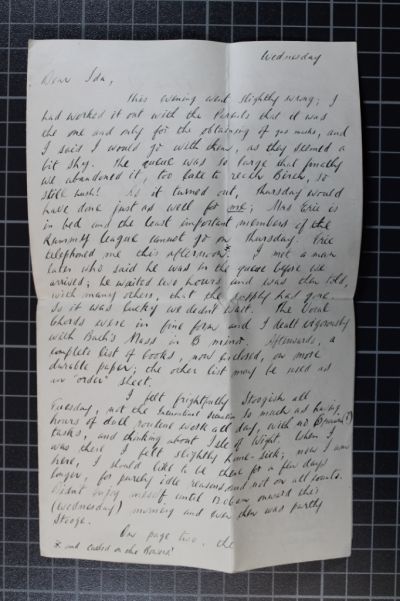 Wednesday
Dear Ida,
This evening went slightly wrong; I
had worked it out with the Parfits that it was
the one and only for the obtaining of gas masks, and
I said I would go with them, as they seemed a
bit shy. The queue was so large that finally
we abandoned it, too late to reach Birch, so
still hush! As it turned out, Thursday would
have done just as well for me; Mrs Eric is
in bed and the least important members of the
League cannot go on Thursday. Eric
telephoned me this afternoon.* I met a man
later who said he was in the queue before we
arrived; he waited two hours and was then told,
with many others, that the supply had gone.
So it was lucky we didn't wait. The Vocal
Chords were in fine form and I dealt vigorously
with Bach's Mass in B minor. Afterwards, a
complete list of books, now enclosed, on more
durable paper; the other list may be used as
an "order" sheet.
I felt frightfully Stoogish all
Tuesday, not the International Situation so much as having
hours of dull routine work all day, with no
tasks, and thinking about Isle of Wight. When I
was there I felt slightly home-sick; now I am
here, I should like to be there for a few days
longer, for purely idle reasons, and not on all counts.
Didn't enjoy myself until 10.0 a.m. onwards this
(Wednesday) morning and even then was partly
Stooge.
On page two, the
* and called on the Howard!